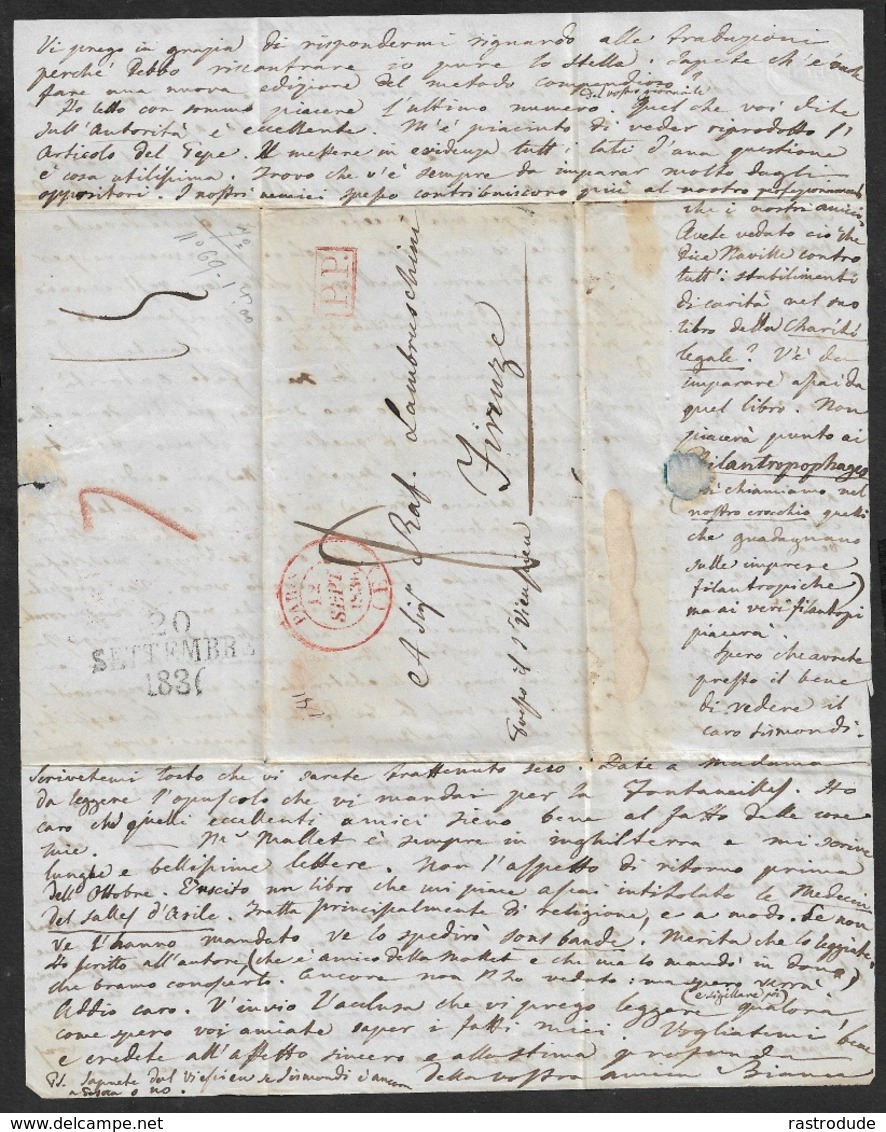 Vi prego in grazia di rispondermi riguardo alle traduzioni
perchè debbo riscontrare io pure lo Stella. Sapete ch'è
fare una nuova edizione del metodo compendioso?
Ho letto con sommo piacere l'ultimo numero del vostro giornale Quel che voi dite
sull'Autorità è eccellente. M'è piaciuto di veder riprodotto l'
Articolo del Pepe. Il mettere in evidenza tutt'i lati d'una questione
è cosa utilissima. Trovo che v'è sempre da imparar molto dagli
oppositori. I nostri nemici spesso contribuiscono più al nostro perfezionamento
che i nostri amici.
Avete veduto ciò che
dice Naville contro
tutt'i stabilimenti
di carità nel suo
libro della Charité
legale? V'è da
imparare assai da
quel libro. Non
piacerà punto ai
filantropophages
si chiamano nel
nostro crocchio quelli
che guadagnano
sulle imprese
filantropiche)
ma ai veri filantropi
piacerà.
Spero che avrete
presto il bene
di vedere il
caro Sismondi.
P.P.
A Sigr Raf. Lambruschini
Firenze
presso il Sr Vieusseux
PARIS
12
SEPT
1836
20
SETTEMBRE
1836
141
Scrivetemi tosto che vi sarete trattenuto seco. Date a madama
da leggere l'opuscolo che vi mandai per la Fontanelles. Ho
caro che quelli eccellenti amici sieno bene al fatto delle cose
mie. Mr Mallet è sempre in inghilterra e mi scrive
lunghe e bellissime lettere. Non l'aspetto di ritorno prima
dell'Ottobre. E' uscito un libro che mi piace assai intitolato le Medecin
des salles d'Asile. Tratta principalmente di religione, e a modo. Se non
ve l'hanno mandato ve lo spedirò sous bande. Merita che lo leggiate.
Ho scritto all'autore, (che è amico della Mallet e che me lo mandò in dono)
che bramo conoscerlo. Ancora non l'ho veduto: ma spero verrà
Addio caro. V'invio l'acclusa che vi prego leggere (e sigillare poi) qualora
come spero voi amiate saper i fatti miei. Vogliatemi bene
e credete all'affetto sincero e alla stima profonda
della vostra amica Bianca
PS. Sapete dal Vieusseux se Sismondi è ancora
a o no.
rastrodude